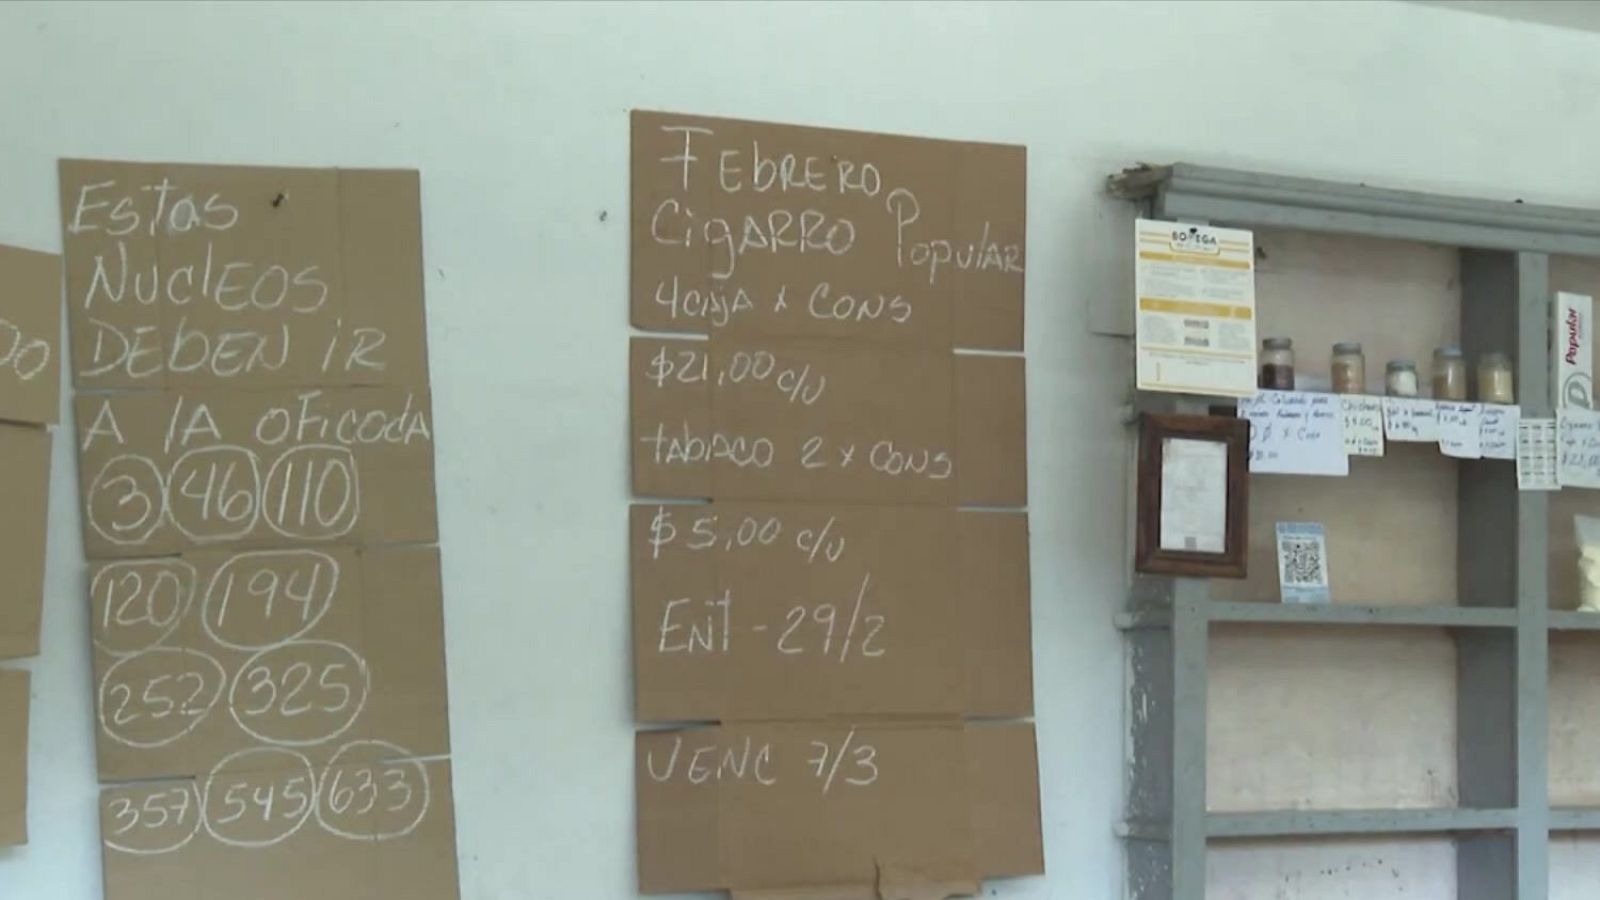 DO
Estas
NUCLEOS
DEBEN IR
A LA OFICODA
3 46 110
120 194
252 325
357 545 633
FEBRERO
CIGARRO POPULAR
4 caja x CONS
$21,00 c/u
TABACO 2 x CONS
$5,00 c/u
ENT - 29/2
VENC 7/3
BODEGA
Popular